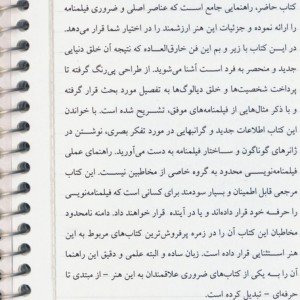 کتاب حاضر، راهنمایی جامع است که عناصر اصلی و ضروری فیلمنامه
را ارائه نموده و جزئیات این هنر ارزشمند را در اختیار شما قرار می‌دهد.
در این کتاب با زیر و بم این فن خارق‌العاده که نتیجه آن خلق دنیایی
جدید و منحصر به فرد است آشنا می‌شوید. از طراحی پی‌رنگ گرفته تا
پرداخت شخصیت‌ها و خلق دیالوگ‌ها به تفصیل مورد بحث قرار گرفته
و با ذکر مثال‌هایی از فیلمنامه‌های موفق، تشریح شده است. با خواندن
این کتاب اطلاعات جدید و گرانبهایی در مورد تفکر بصری، نوشتن در
ژانرهای گوناگون و ساختار فیلمنامه به دست می‌آورید. راهنمای عملی
فیلمنامه‌نویسی محدود به گروه خاصی از مخاطبین نیست. این کتاب
مرجعی قابل اطمینان و بسیار سودمند برای کسانی است که فیلمنامه‌نویسی
را حرفه خود قرار داده‌اند و یا در آینده قرار خواهند داد. دامنه نامحدود
مخاطبان این کتاب آن را در زمره پرفروش‌ترین کتاب‌های مربوط به این
هنر استثنایی قرار داده است. زبان ساده و البته علمی و دقیق این راهنما
آن را به یکی از کتاب‌های ضروری علاقمندان به این هنر – از مبتدی تا
حرفه‌ای – تبدیل کرده است.